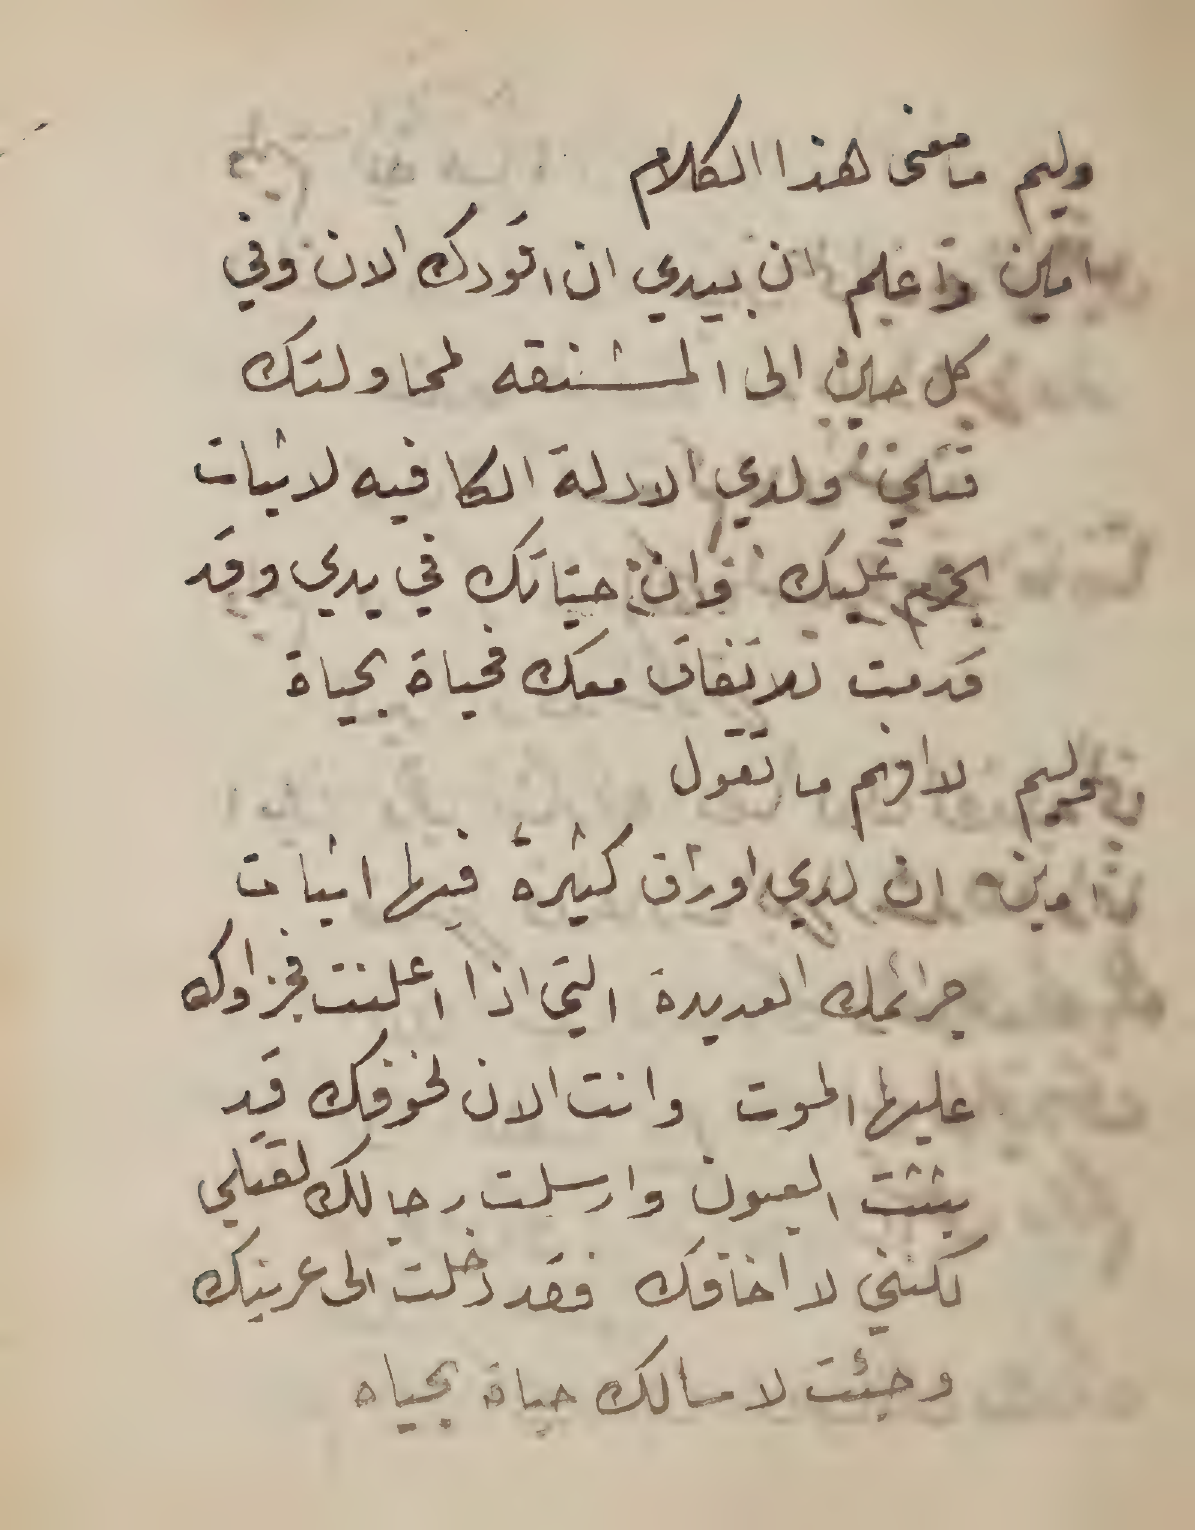 وليم ما معنى هذا الكلام
امين واعلم ان بيدي ان اقودك الان وفي
كل حين الى المشنقه لمحاولتك
قتلي ولدي الادلة الكافيه لاثبات
الجرم عليك وان حياتك في يدي وقد
قدمت للاتفاق معك فحياة بحياة
وليم لا افهم ما تقول
امين ان لدي اوراق كثيرة فيها اثبات
جرائمك العديدة التي اذا اعلنت فجزاوك
عليها الموت وانت الان لخوفك قد
بثثت العيون وارسلت رجالك لقتلي
لكنني لا اخافك فقد دخلت الى عرينك
وجئت لاسالك حياة بحياه